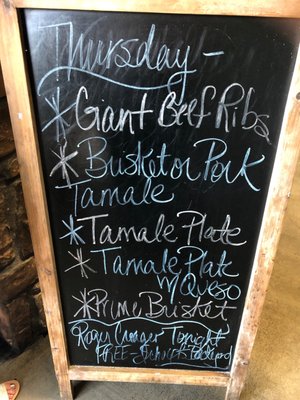 Thursday -
* Giant Beef Ribs
* Brisket or Pork
Tamale
* Tamale Plate
* Tamale Plate
w/ Queso
* Prime Brisket
Roger Creager Tonight
FREE -